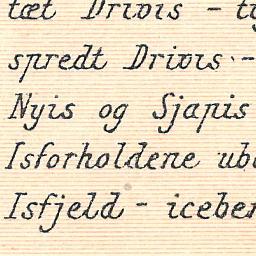 tæt Drivis - ty
spredt Drivis -
Nyis og Sjapis
Isforholdene ube
Isfjeld - iceber